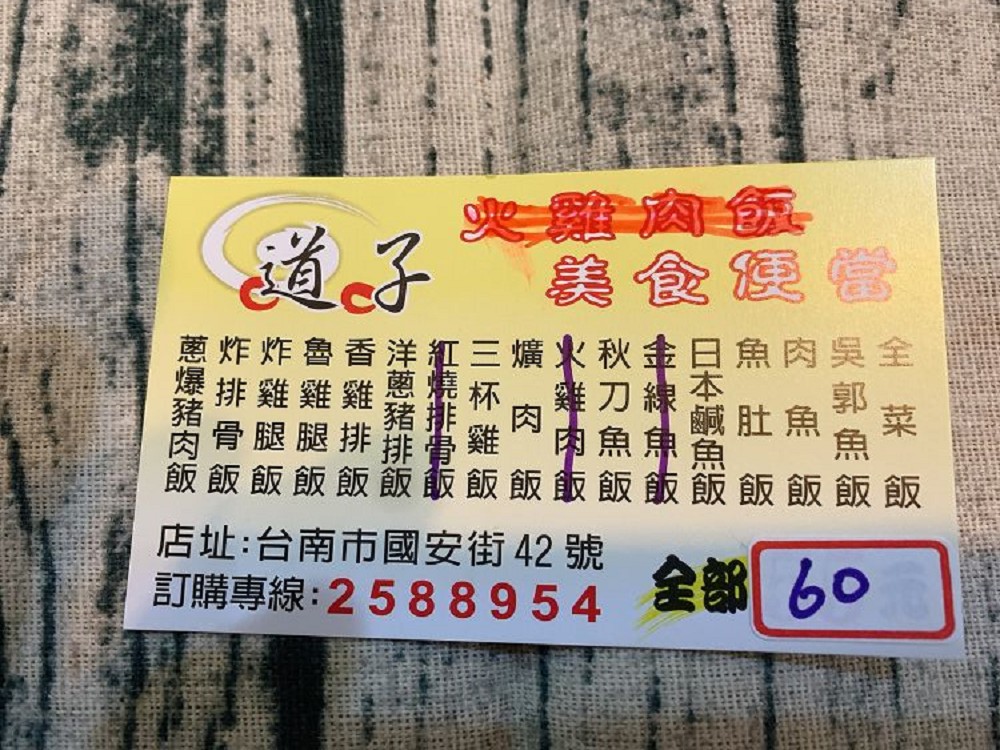 道子
火雞肉飯
美食便當
蔥爆豬肉飯
炸排骨飯
炸雞腿飯
魯雞腿飯
香雞排飯
洋蔥豬排飯
紅燒排骨飯
三杯雞飯
爌肉飯
火雞肉飯
秋刀魚飯
金線魚飯
日本鹹魚飯
魚肚飯
肉魚飯
吳郭魚飯
全菜飯
店址:台南市國安街42號
訂購專線:2588954
全部 60